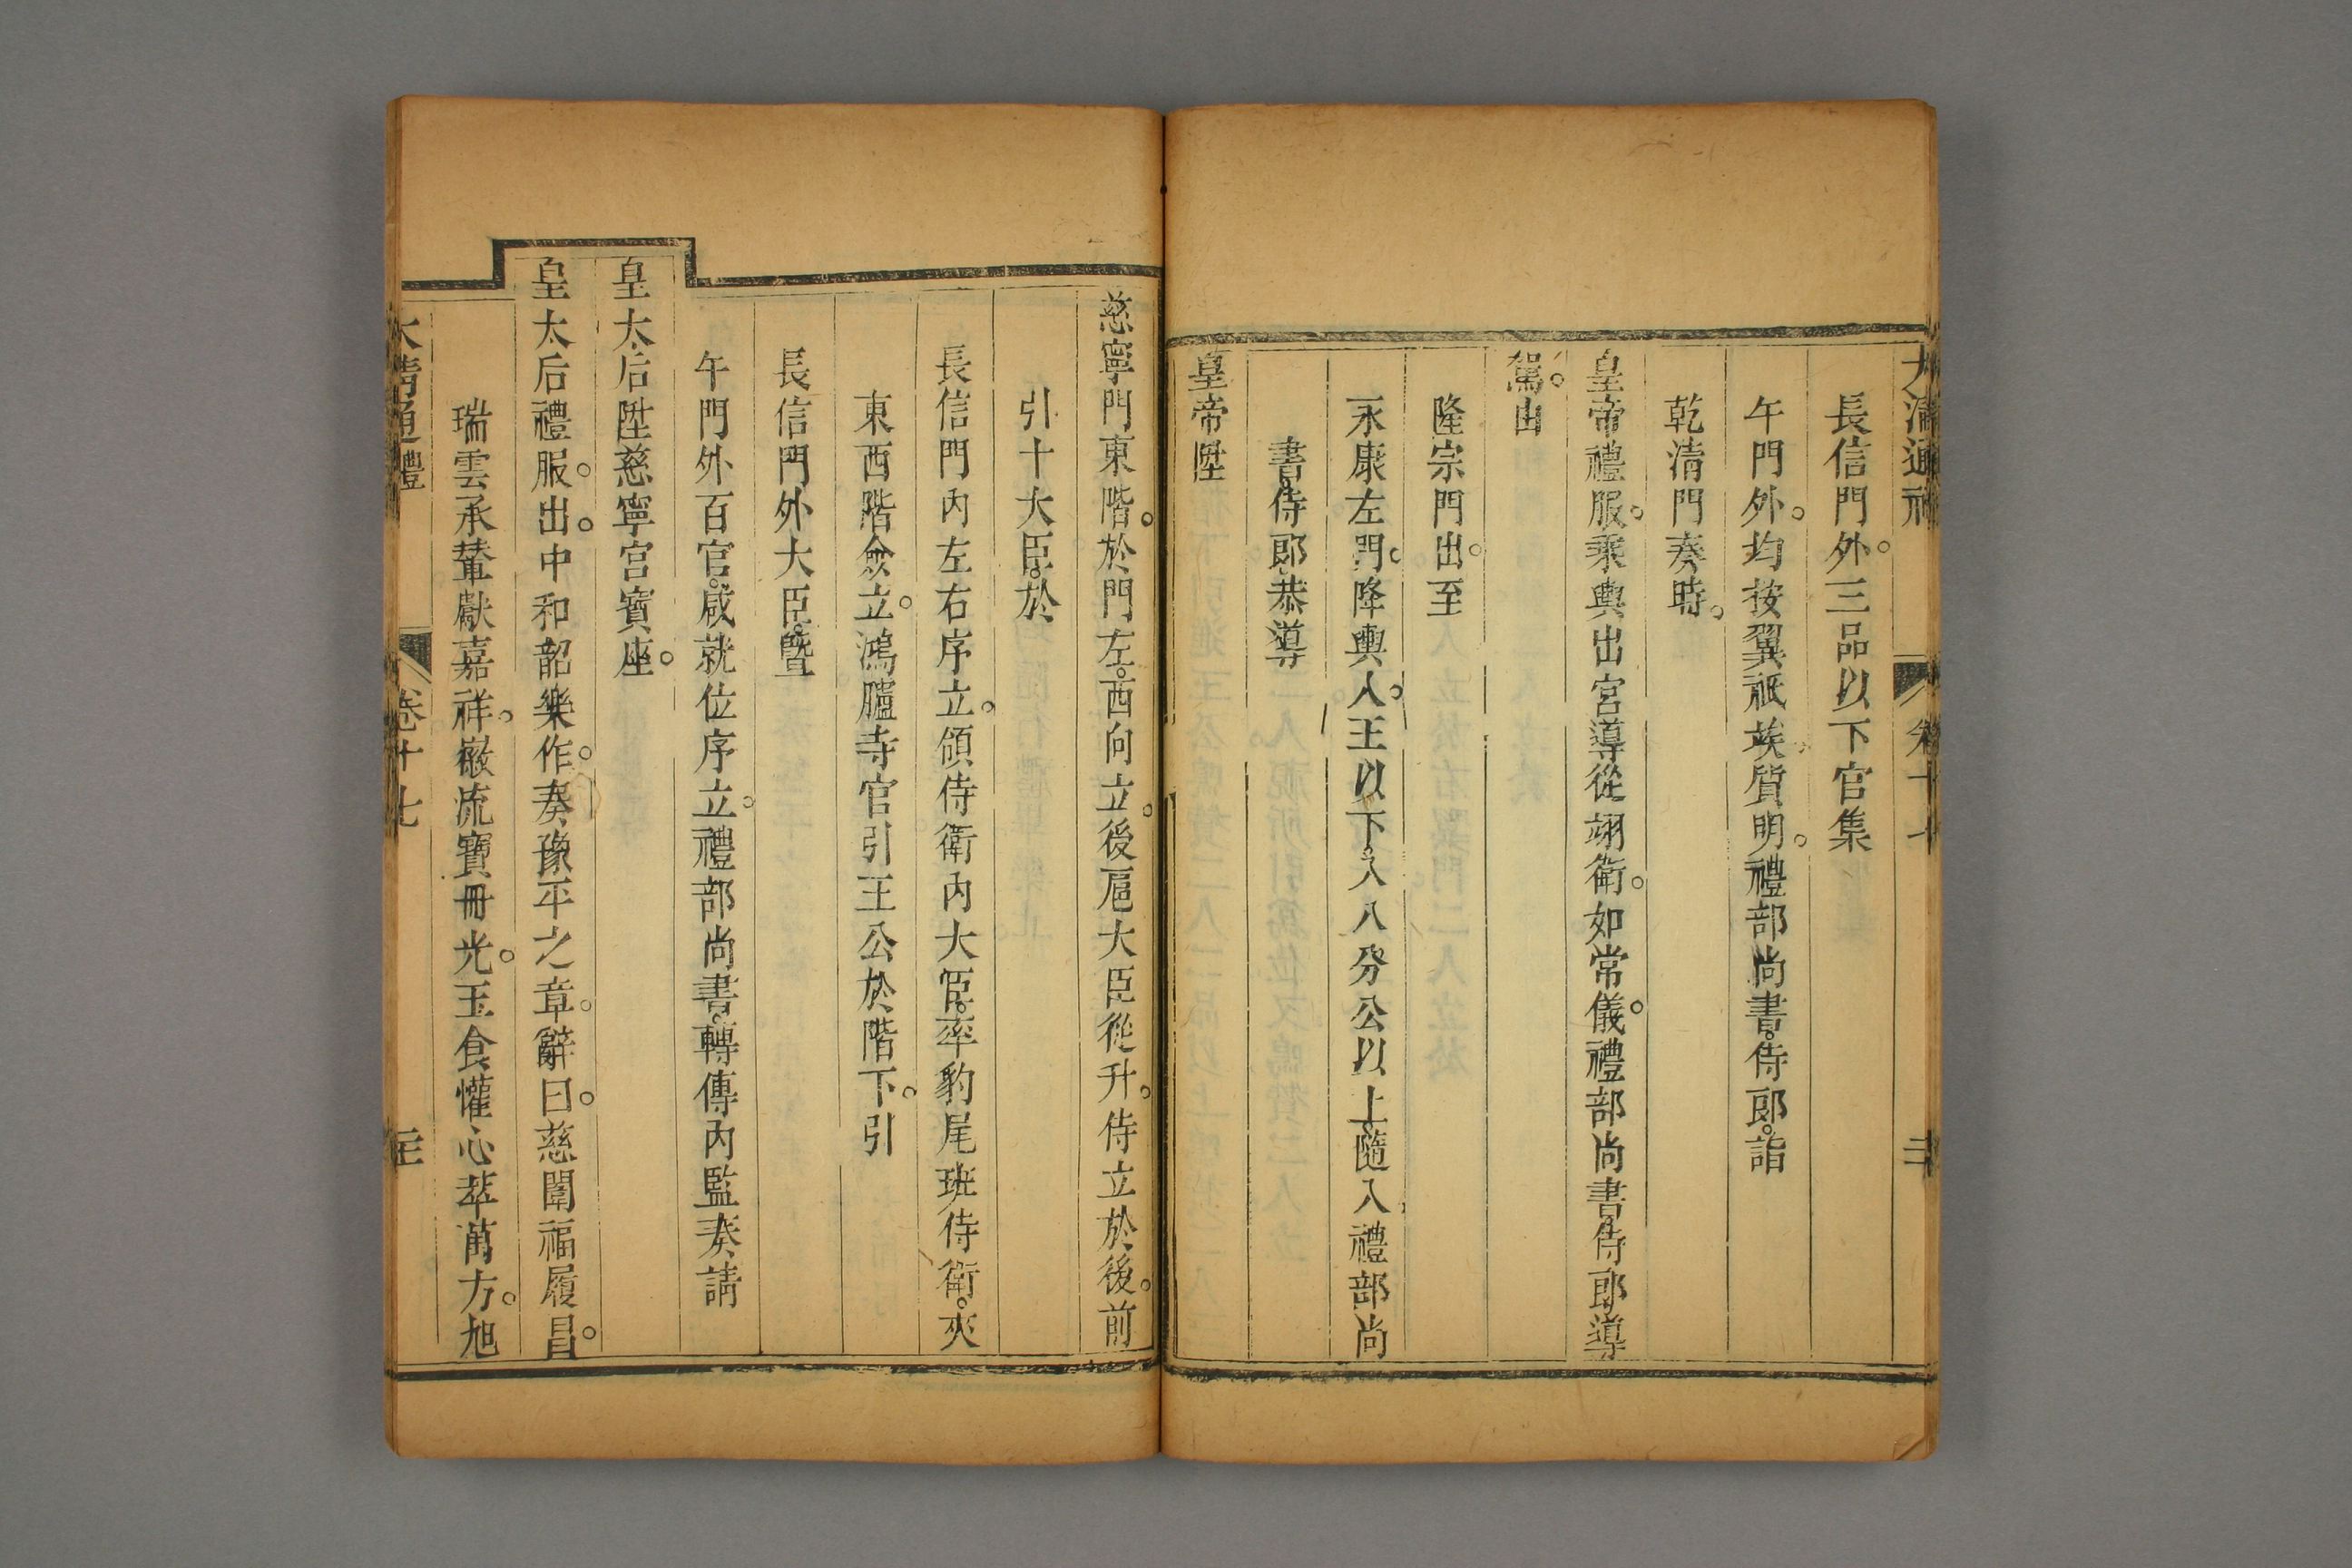 大清通禮 卷十七
長信門外。三品以下官集
午門外。均按翼祗竢。質明。禮部尚書。侍郞。詣
乾清門奏時。
皇帝禮服。乘輿出宮導從翊衛。如常儀。禮部尚書侍郞導
駕。由
隆宗門出。至
永康左門。降輿。人王以下。入八分公以上。隨入禮部尚
書。侍郞。恭導
皇帝陞
慈寧門東階。於門左。西向立。後扈大臣從升。侍立於後。前
引十大臣。於
長信門內左右序立。領侍衛內大臣。率豹尾班侍衛。夾
東西階僉立。鴻臚寺官引王公於階下。引
長信門外大臣。暨
午門外百官。咸就位序立。禮部尚書。轉傳內監奏請
皇太后陞慈寧宮寶座。
皇太后禮服。出。中和韶樂作。奏豫平之章。辭曰。慈闈福履昌。
瑞雲承輦獻嘉祥。徽流寶冊光。玉食懽心萃萬方。旭
大清通禮 卷十七